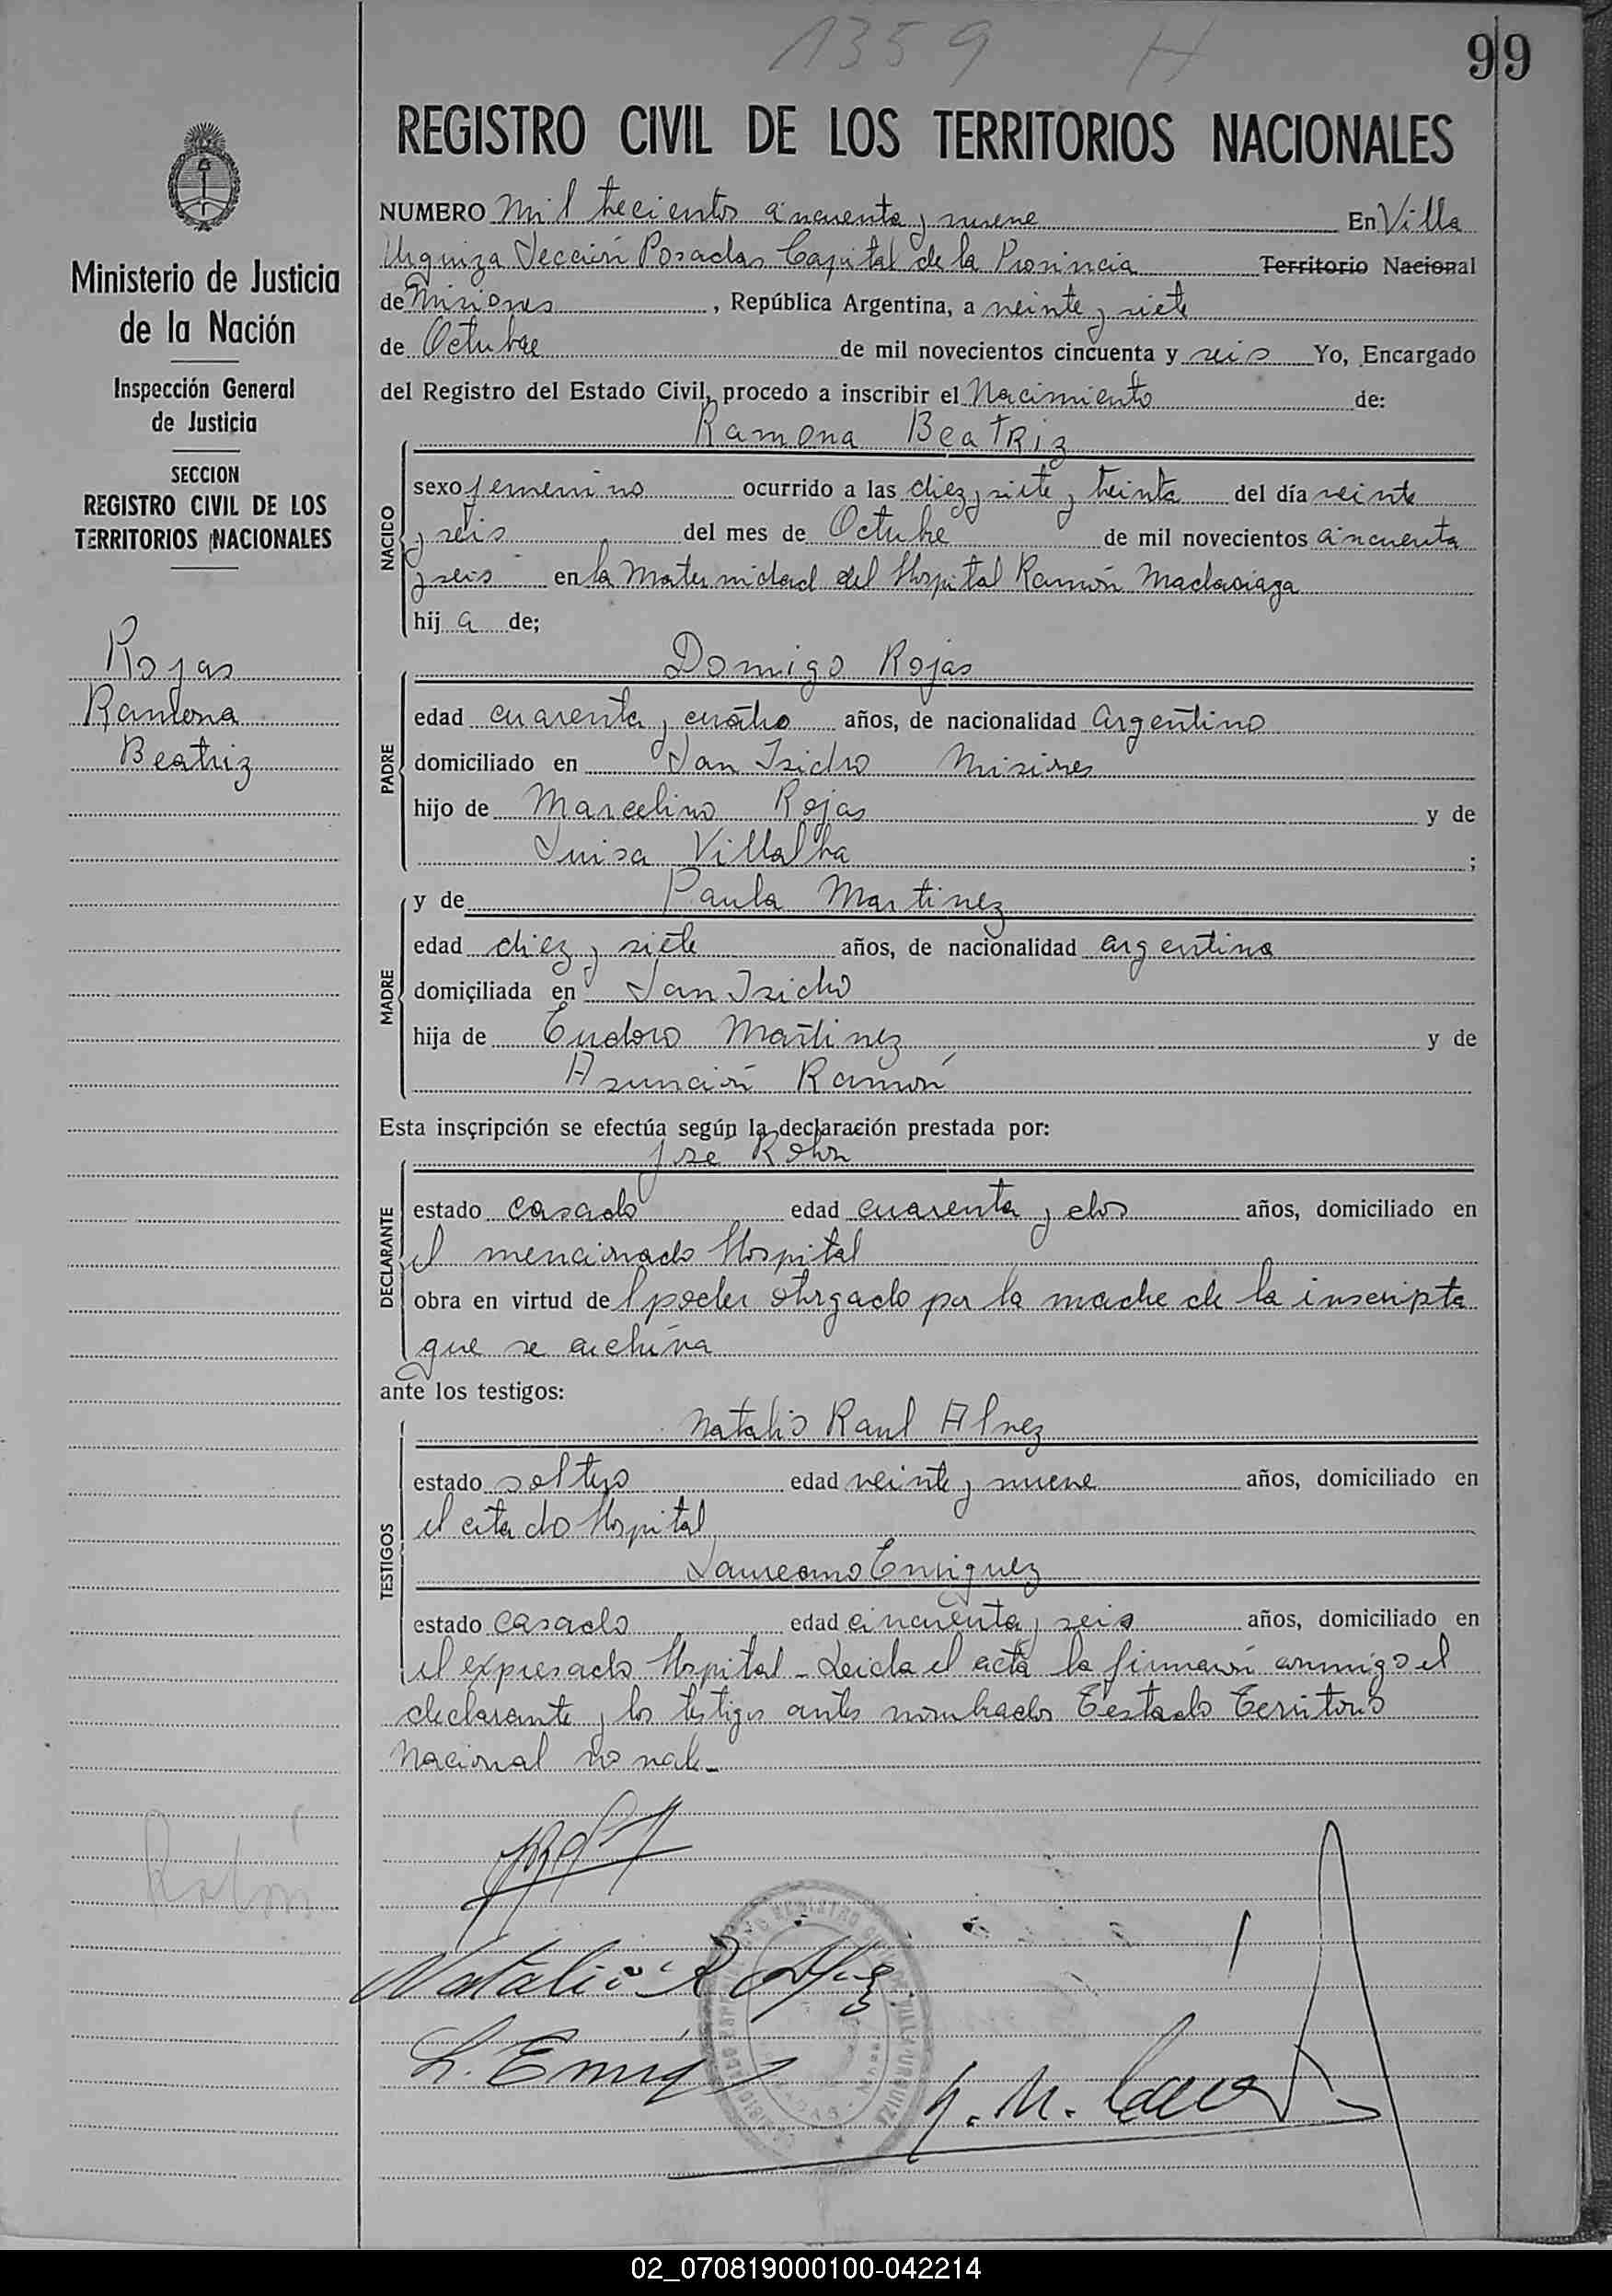 1359 H
99
REGISTRO CIVIL DE LOS TERRITORIOS NACIONALES
Ministerio de Justicia
de la Nación
Inspección General
de Justicia
SECCION
REGISTRO CIVIL DE LOS
TERRITORIOS NACIONALES
Rojas
Ramona
Beatriz
NUMERO Mil trecientos cincuenta y nueve En Villa
Urquiza Sección Posadas Capital de la Provincia Territorio Nacional
de Misiones, República Argentina, a veinte y siete
de Octubre de mil novecientos cincuenta y seis Yo, Encargado
del Registro del Estado Civil, procedo a inscribir el Nacimiento de:
Ramona Beatriz
NACIDO
sexo femenino ocurrido a las diez y siete y treinta del día veinte
y seis del mes de Octubre de mil novecientos cincuenta
y seis en la Maternidad del Hospital Ramón Madariaga
hija de;
Domigo Rojas
PADRE
edad cuarenta y cuatro años, de nacionalidad Argentino
domiciliado en San Isidro Misiones
hijo de Marcelino Rojas y de
Luisa Villalba;
y de Paula Martinez
MADRE
edad diez y siete años, de nacionalidad argentina
domiciliada en San Isidro
hija de Eudoro Martinez y de
Asunción Ramón
Esta inscripción se efectúa según la declaración prestada por:
José
DECLARANTE
estado casado edad cuarenta y dos años, domiciliado en
el mencionado Hospital
obra en virtud del poder otorgado por la madre de la inscripta
que se archiva
ante los testigos:
Natalio Raul Alvez
TESTIGOS
estado soltero edad veinte y nueve años, domiciliado en
el citado Hospital
Laureano Enriquez
estado casado edad cincuenta y seis años, domiciliado en
el expresado Hospital - Leida el acta la firmarón conmigo el
declarante y los testigos antes nombrados Testado Territorio
Nacional no vale-
Natalio R Alvez
L. Enriq
02_070819000100-042214